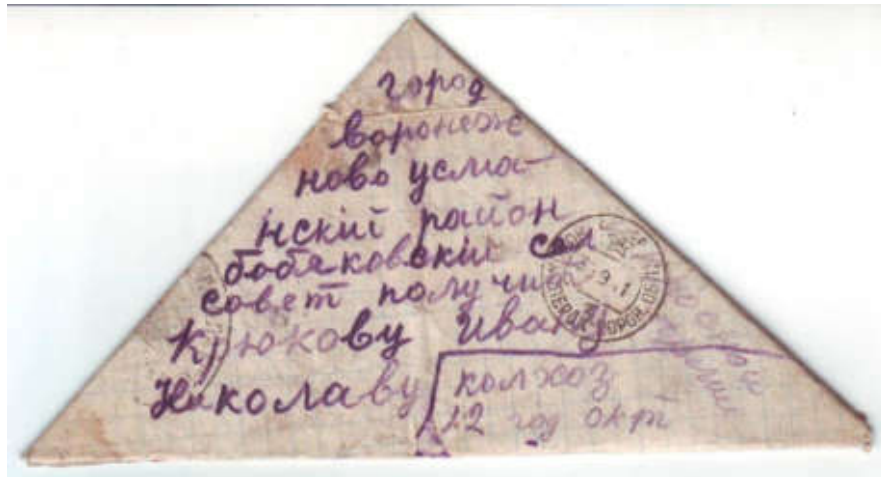 город
воронеже
ново усма-
нский район
бобяковский сел
совет получи
Крюкову Ивану
Николаву
колхоз
12 год окт